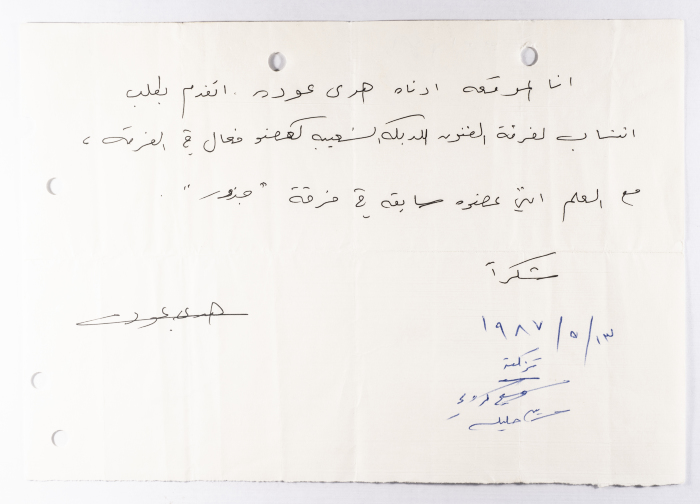 انا الموقعه ادناه هدى عوده . اتقدم بطلب
انتساب لفرقة الفنون للدبكة الشعبيه كعضو فعال في الفرقه ،
مع العلم انني عضوه سابقه في فرقة "جذور" .
شكراً
هدى عوده
١٣/٥/١٩٨٧
تزكية